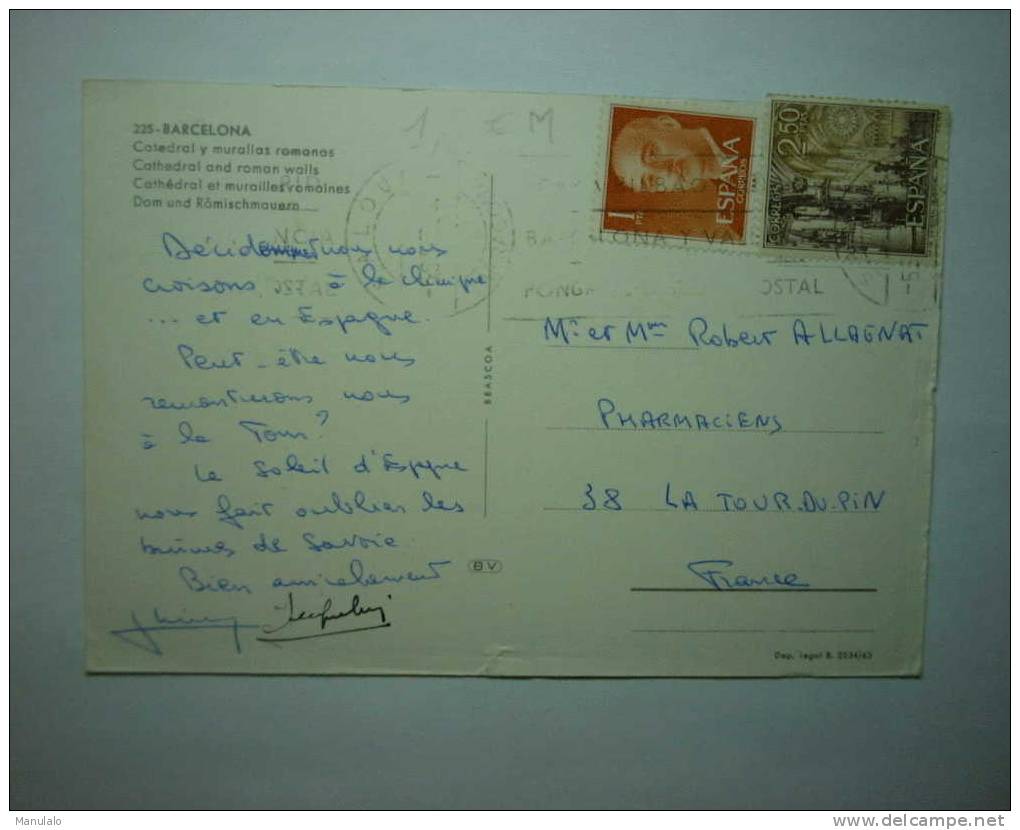 225-BARCELONA
Catedral y murallas romanas
Cathedral and roman walls
Cathédral et murailles romaines
Dom und Römischmauern
1, € M
1
PTA
ESPAÑA
CORREOS
2,50
PTA
CORREOS
ESPAÑA
BARCELONA Y VA
PONGA
OSTAL
Décidemment nous nous
croisons à la clinique
... et en Espagne.
Peut-être nous
remontrerons nous
à la Tour?
Le Soleil d'Espagne
nous fait oublier les
brumes de Savoie.
Bien amicalement
BEASCOA
BV
Mr et Mme Robert ALLAGNAT
PHARMACIENS
38 LA TOUR.DU.PIN
France
Dep. legal B. 2034/63
Manulalo
delcampe.net